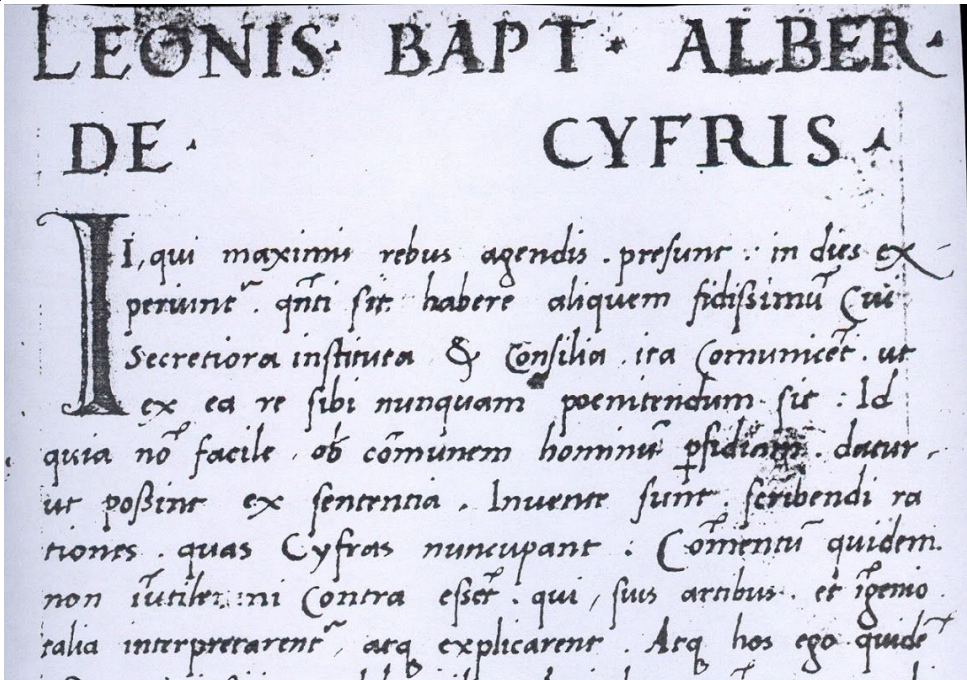 LEONIS · BAPT · ALBER ·
DE · CYFRIS ·
II, qui maximis rebus agendis . presunt : in dies ex
periunt᷑ . qñti sit habere aliquem fidissimū Cui
Secretiora instituta & Consilia . ita Comunicēt . ut
ex ea re sibi nunquam poenitendum sit : Id
quia nō facile . ob cōmunem hominū ꝑfidiam . datur .
ut poßint ex sententia . Invente sunt . scribendi ra
tiones . quas Cyfras nuncupant : Cōmentū quidem .
non īutile : ni Contra essēt . qui , suis artibus . et īgenio
talia interpretarent᷑ . atq explicarent . Atq hos ego quidē